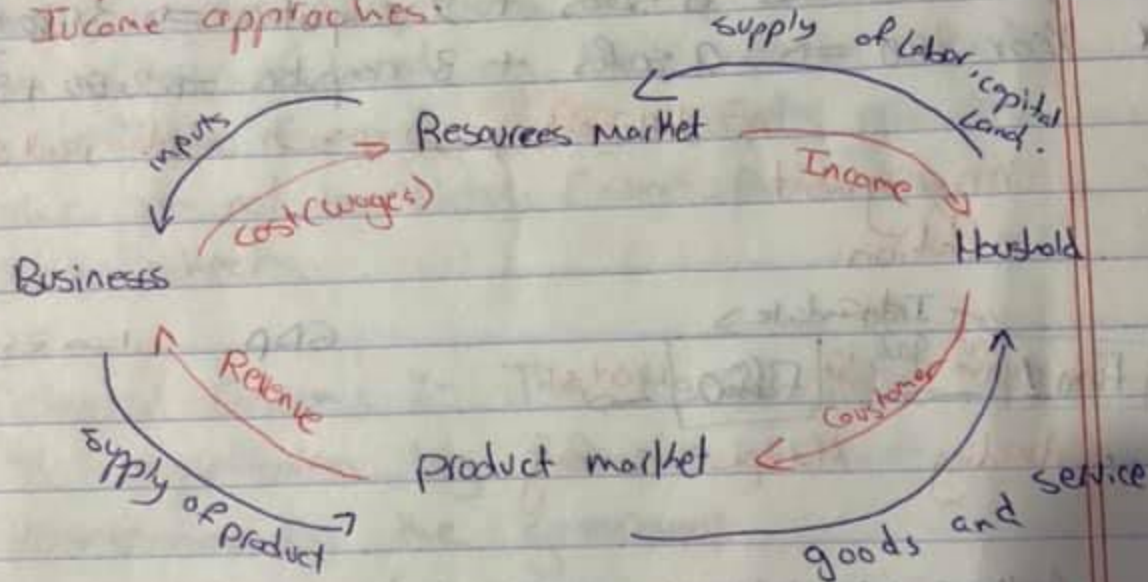 Income approaches:
supply of Labor, capital
Land.
inputs
Resources market
Income
cost (wages)
Houshold
Businesss
Revenue
Coustomer
product market
supply of product
goods and service